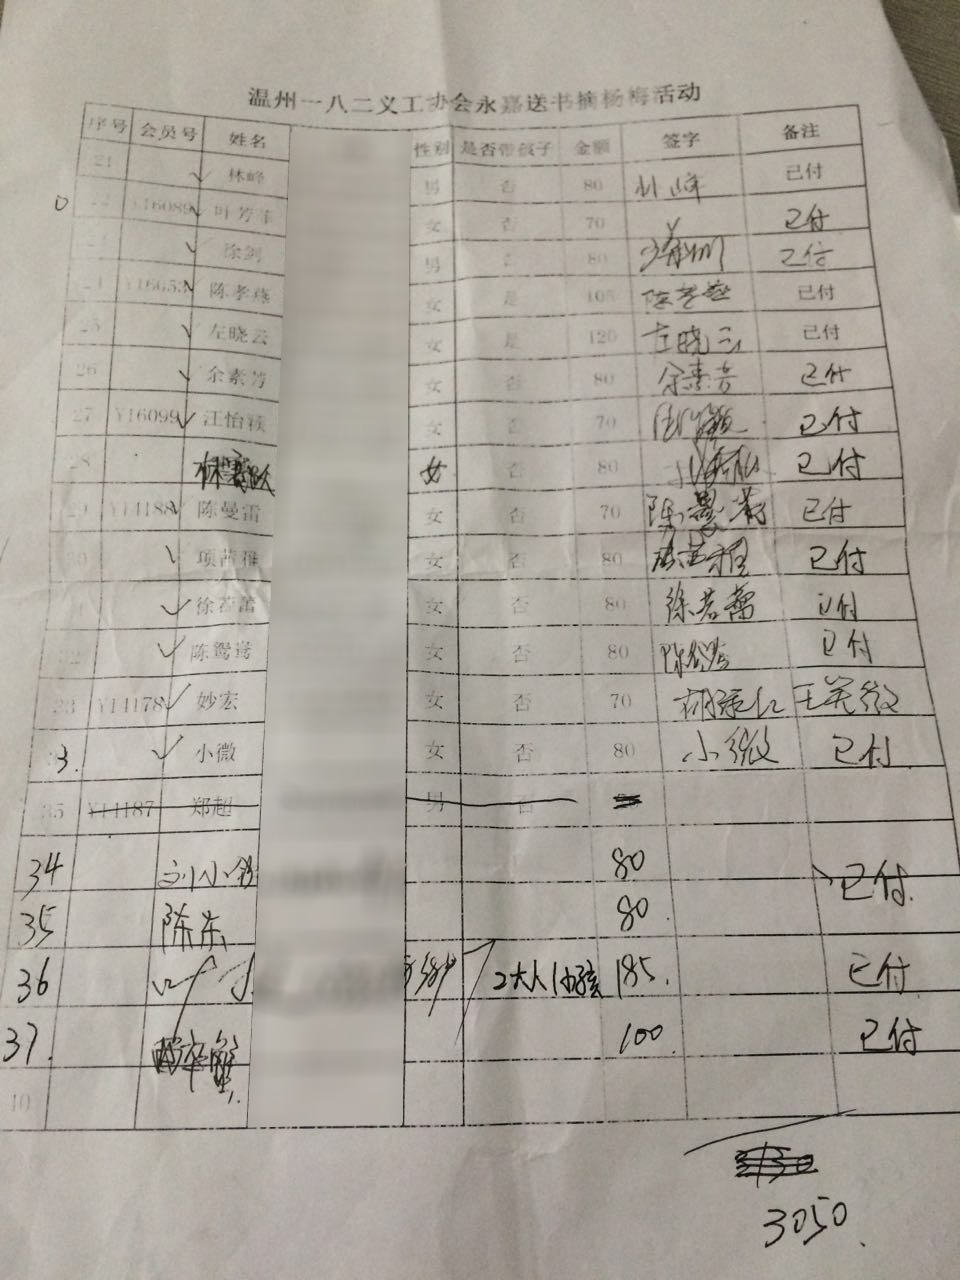 温州一八二义工协会永嘉送书摘杨梅活动
序号 会员号 姓名 性别 是否带孩子 金额 签字 备注
21 林峰 男 否 80 林峰 已付
Y16089 叶芳 女 否 70 已付
徐剑 男 否 80 已付
24 Y16653 陈孝燕 女 是 105 陈孝燕 已付
25 左晓云 女 是 120 左晓云 已付
26 余素芳 女 否 80 余素芳 已付
27 Y16099 江怡颖 女 否 70 江怡颖 已付
28 女 否 80 已付
29 Y14188 陈曼雷 女 否 70 陈曼 已付
30 项茜雅 女 否 80 已付
徐若蕾 女 否 80 徐若蕾 已付
32 陈鸳鸯 女 否 80 已付
33 Y14178 妙宏 女 否 70 王芙微
33. 小微 女 否 80 小微 已付
35 Y14187 郑超 男 否
34 刘小 80 已付.
35 陈东 80.
36 2大人1小孩 185. 已付
37. 100. 已付
40
3050.